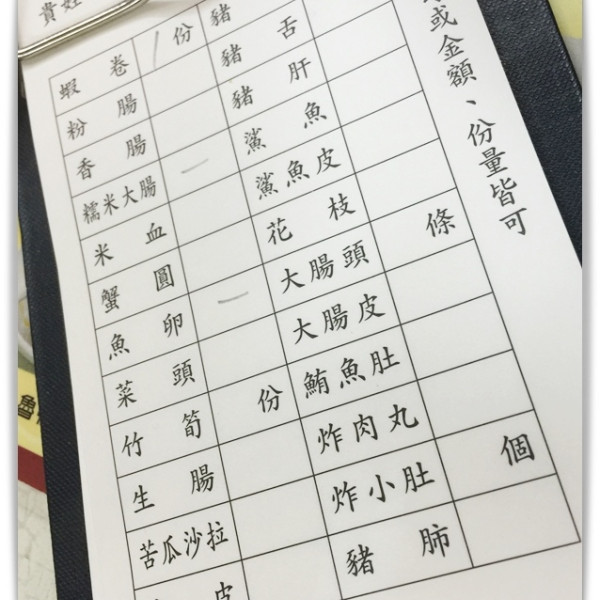 貴姓
或金額、份量皆可
蝦卷 / 份 豬
粉腸 豬舌
香腸 豬肝
糯米大腸 一 鯊魚
米血 鯊魚皮
蟹圓 花枝
魚卵 一 大腸頭 條
菜頭 大腸皮
竹筍 份 鮪魚肚
生腸 炸肉丸
苦瓜沙拉 炸小肚 個
皮 豬肺